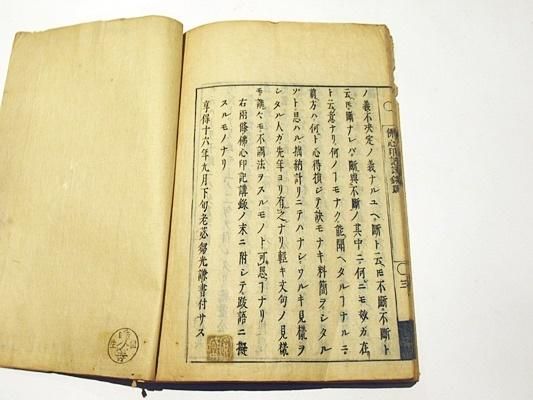 ノ義不決定ノ義ナルユヘ斷ト云𪜈不斷不斷ト
云𪜈斷ナレバ斷與不斷ノ其中ニ何ニモ故カ在
ト云意ナリ何ノヿモナク能聞ヘタルヿナルニ
前方ハ何ト心得損ジテ訣モナキ料簡ヲシタル
ゾト思ハル拙衲計リニテハナシワルキ見樣ヲ
シタル人カ先年ヨリ有之ナリ輕キ文句ノ見樣
モ誰々モ不調法ヲスルモノト可思ヿナリ
右兩條佛心印記講錄ノ末ニ附シテ跋語ニ擬
スルモノナリ
享保十六年九月下旬老苾芻光謙書付サス
佛心印記講錄
三